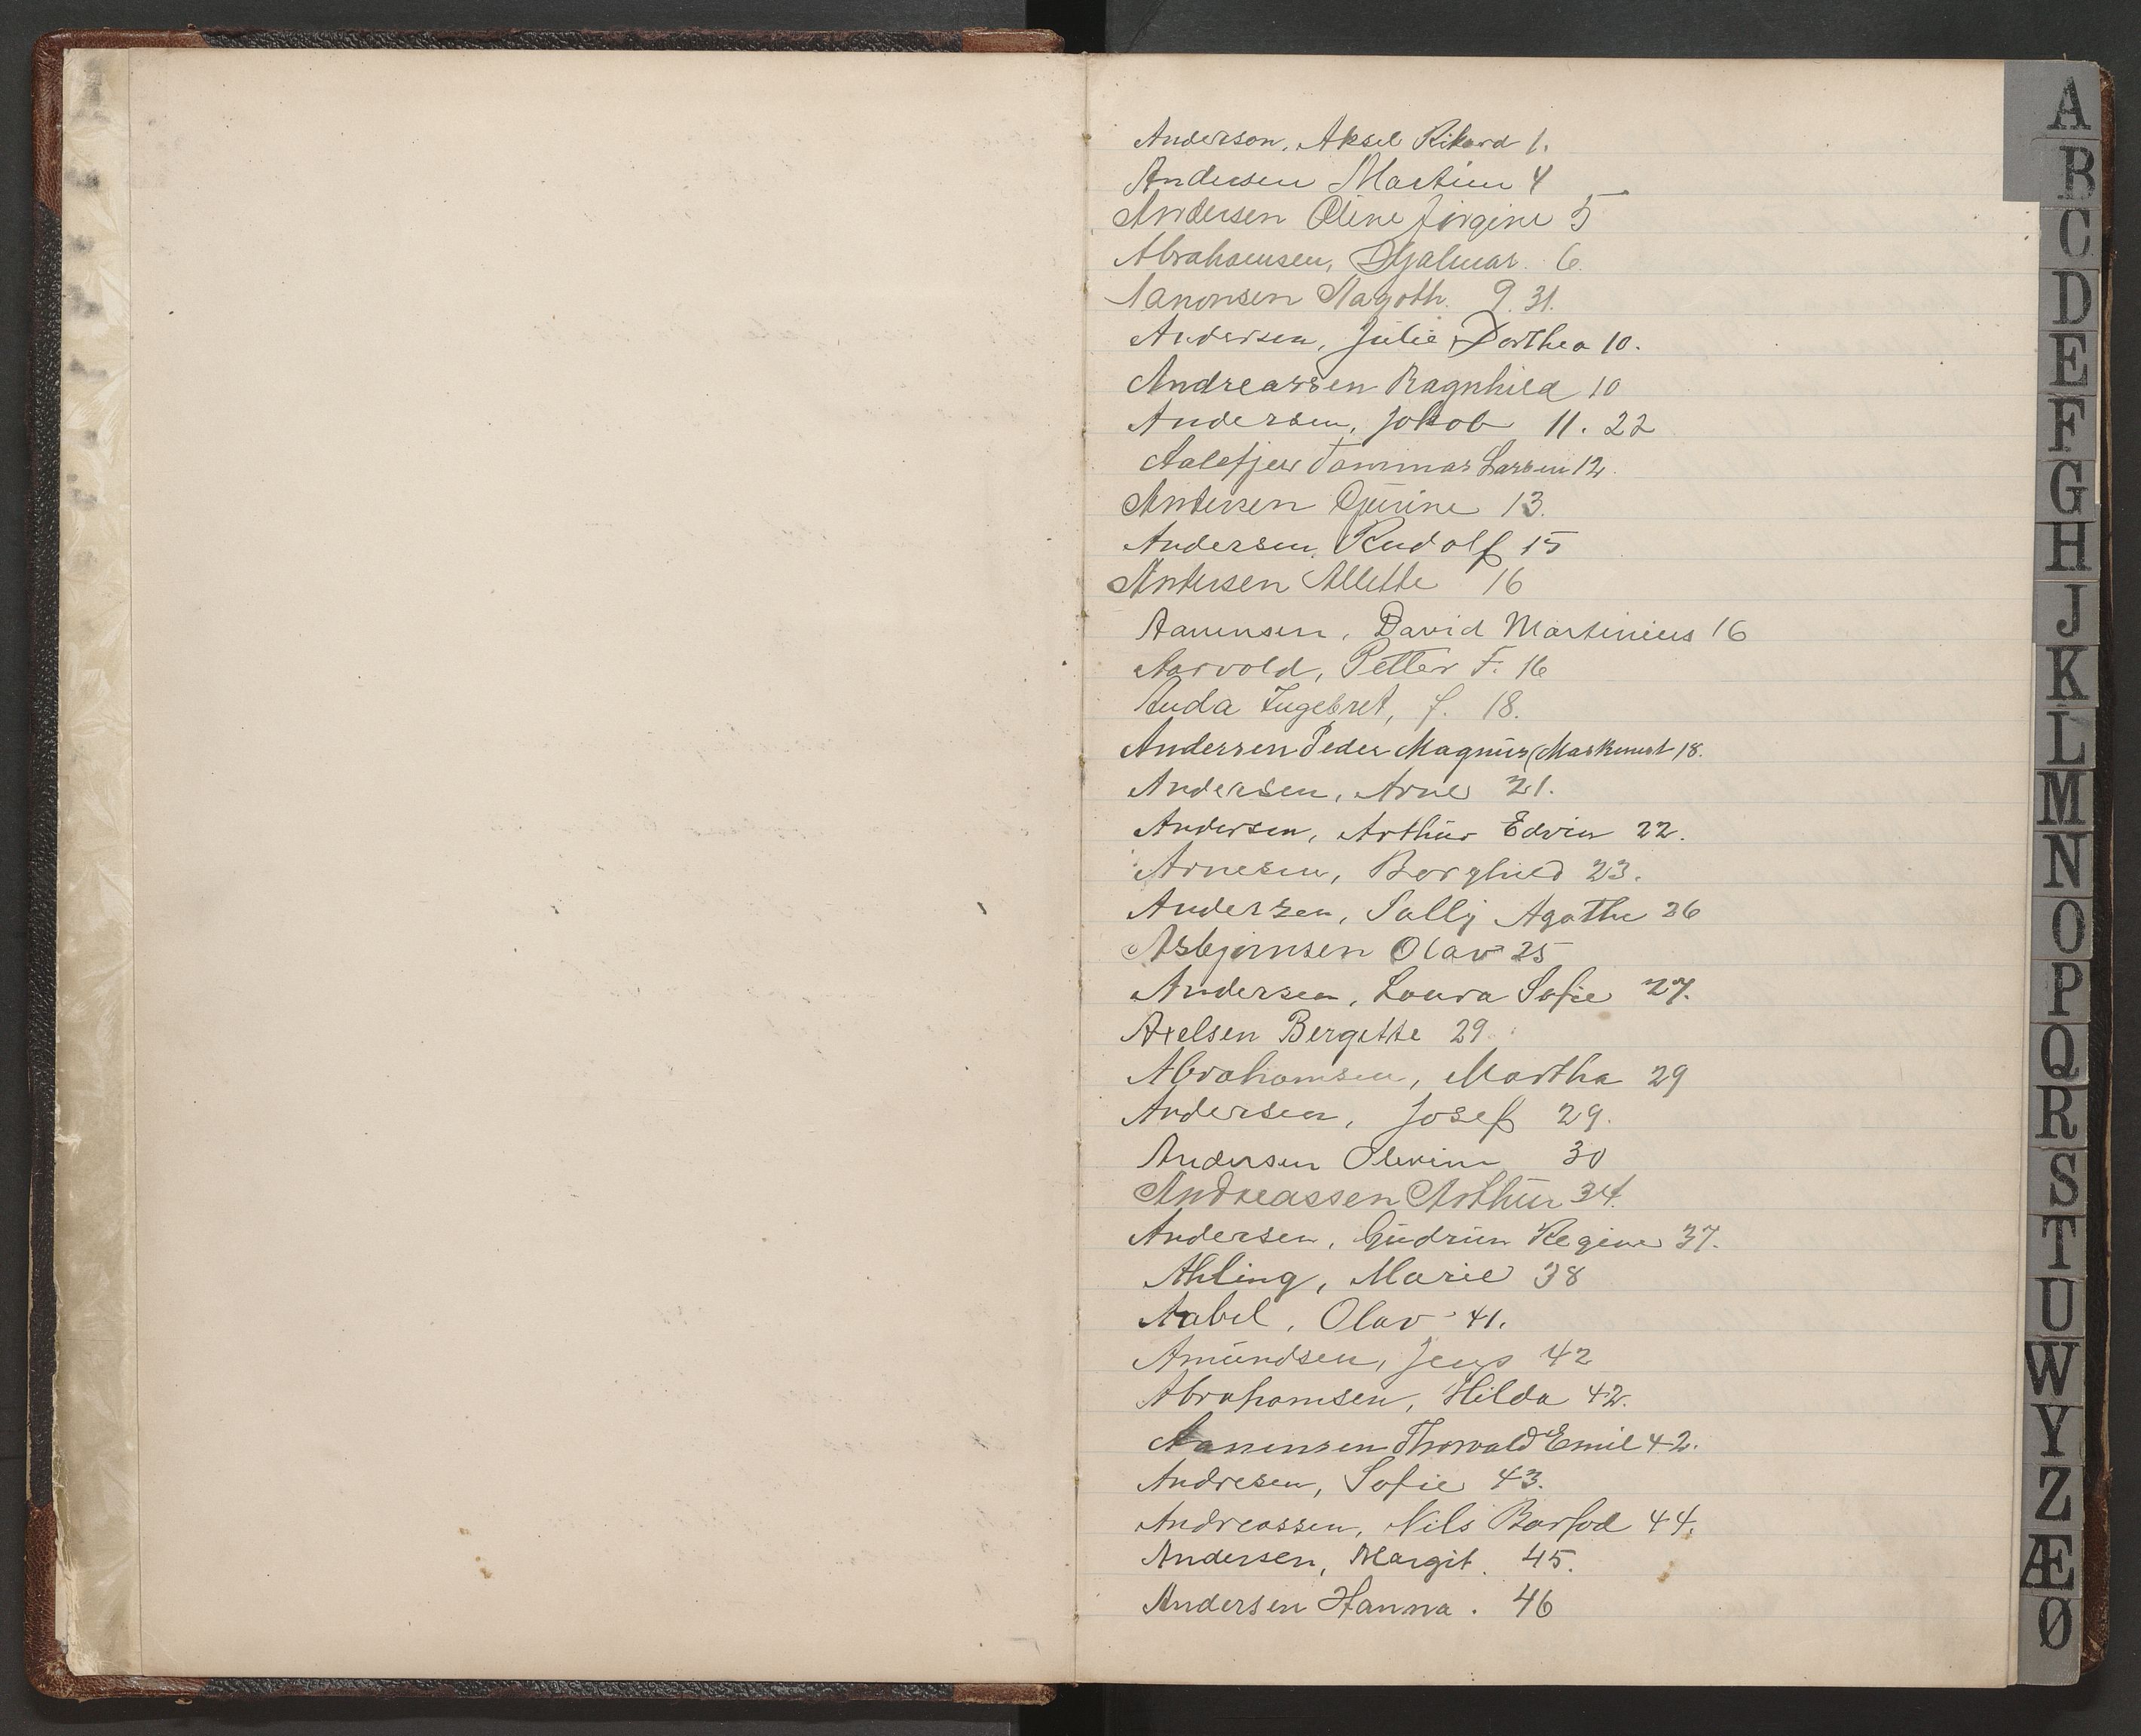 Anderson, Aksel Rikard 1.
Andersen Martin 4
Andersen Oline Jörgine 5
Abrahamsen, Hjalmar. 6.
Aanonsen Aagoth. 9. 31.
Andersen, Julie Dorthea 10.
Andreassen Ragnhild 10
Andersen, Jakob 11. 22
Tommas Larsen 12.
Andersen Gurine 13.
Andersen, Rudolf 15
Andersen Allette 16
Aanensen, David Martinius 16
Aarvold, Petter F. 16
Auda Ingebret, f. 18.
Andersen Peder Magnus 18.
Andersen, Arne 21.
Andersen, Arthur Edvin 22.
Arnesen, Borghild 23.
Andersen, Sally Agathe 26
Asbjørnsen Olav 25
Andersen, Laura Sofie 27.
Axelsen Bergitte 29.
Abrahamsen, Martha 29
Andersen, Josef 29.
Andersen 30
Andreassen Arthur 34.
Andersen, Gudrun Regine 37.
Ahling, Marie 38
Aabel, Olav 41.
Amundsen, Jens 42
Abrahamsen, Hilda 42.
Aanensen Thorvald Emil 42.
Andresen, Sofie 43.
Andreassen, Nils Barfod 44.
Andersen, Margit. 45.
Andersen Hanna. 46
A
B
C
D
E
F
G
H
J
K
L
M
N
O
P
Q
R
S
T
U
W
Y
Z
Æ
Ø